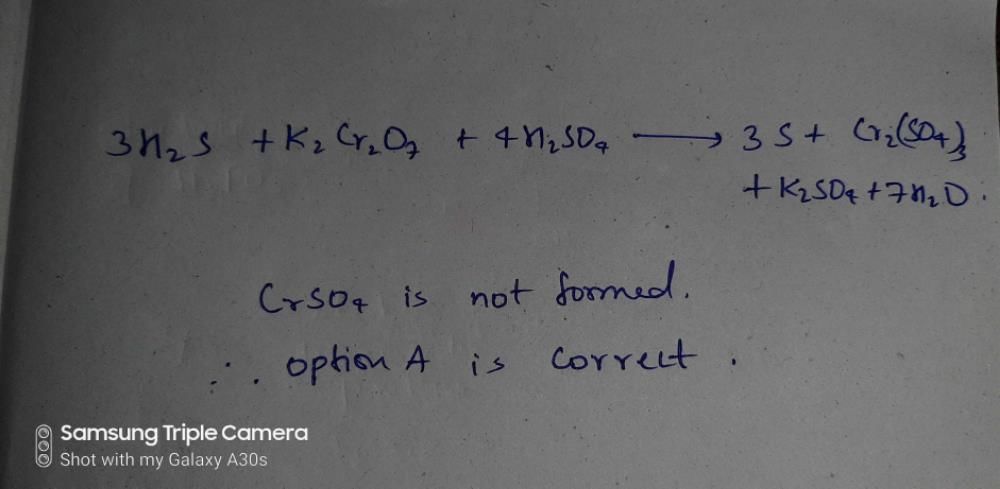 3H₂S + K₂Cr₂O₇ + 4H₂SO₄ ⟶ 3S + Cr₂(SO₄)₃
+ K₂SO₄ + 7H₂O.
CrSO₄ is not formed.
∴ option A is correct.
Samsung Triple Camera
Shot with my Galaxy A30s